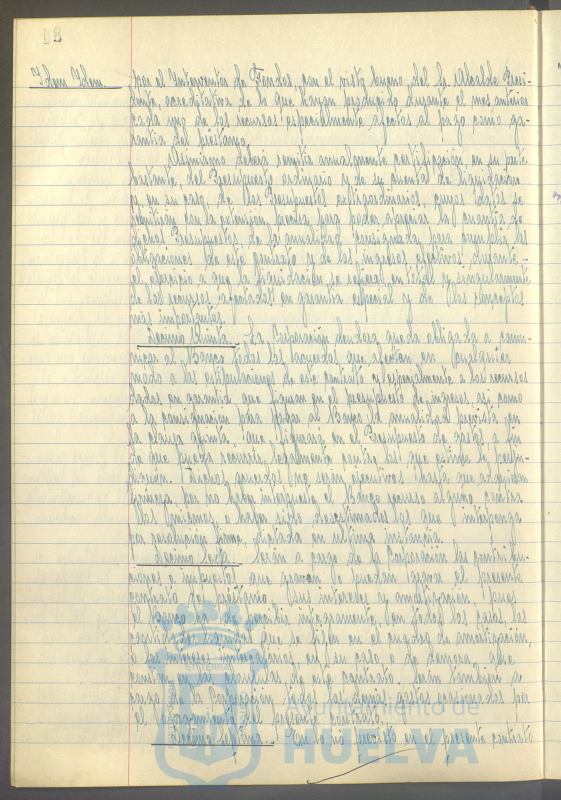 98
Idem Idem.
por el Interventor de Fondos, con el visto bueno del Sr. Alcalde Presi-
dente, acreditativa de lo que hayan producido durante el mes anterior
cada uno de los recursos especialmente afectos al pago como ga-
rantía del préstamo.
Asimismo deberá remitir anualmente certificación, en su parte
bastante, del Presupuesto ordinario y de su cuenta de liquidación
y, en su caso, de los Presupuestos extraordinarios, cuyos datos se
remitirán con la extensión precisa para poder apreciar la cuantía de
dichos Presupuestos, de la anualidad consignada para cumplir las
obligaciones de este contrato y de los ingresos efectivos durante
el ejercicio a que la liquidación se refiera, en total y singularmente
de los recursos afectados en garantía especial y de los conceptos
más importantes.
Decimo quinta. La Corporación deudora queda obligada a comu-
nicar al Banco todos los acuerdos que afecten en cualquier
modo a las estipulaciones de este contrato y especialmente a los recursos
dados en garantía que figuran en el presupuesto de ingresos, así como
a la consignación para pagar al Banco la anualidad prevista en
la clausula quinta, que figurará en el Presupuesto de gastos a fin
de que pueda recurrir legalmente contra los que estime le perju-
diquen. Dichos acuerdos no serán ejecutivos hasta que adquieran
firmeza, por no haber interpuesto el Banco recurso alguno contra
los mismos, o haber sido desestimados los que interponga
por resolución firme, dictada en última instancia.
Decimo sexta. Serán a cargo de la Corporación las contribu-
ciones e impuestos que graven o puedan gravar el presente
contrato de préstamo. Sus intereses y amortización, pues
el Banco ha de percibir integramente, en todos los casos, las
cantidades líquidas que se fijen en el cuadro de amortización,
o los intereses intercalarios, en su caso, o de demora, que
constan en las cláusulas de este contrato. Serán también a
cargo de la Corporación todos los demás gastos ocasionados por
el otorgamiento del presente contrato.
Decimo séptima. En lo no previsto en el presente contrato
Ayuntamiento de
HUELVA